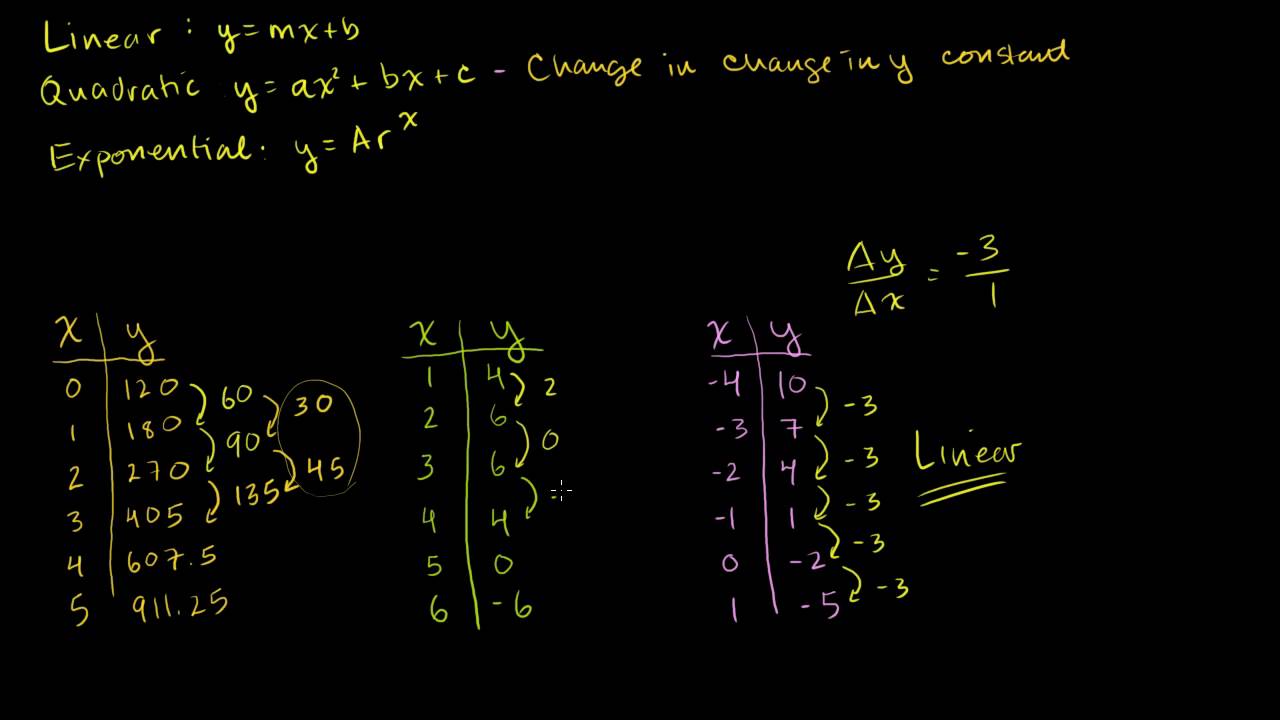 Linear : y=mx+b
Quadratic y=ax²+bx+c - Change in change in y constant
Exponential: y=Ar^x
Δy/Δx = -3/1
x | y
0 | 120
1 | 180
2 | 270
3 | 405
4 | 607.5
5 | 911.25
60
90
135
30
45
x | y
1 | 4
2 | 6
3 | 6
4 | 4
5 | 0
6 | -6
2
0
x | y
-4 | 10
-3 | 7
-2 | 4
-1 | 1
0 | -2
1 | -5
-3
-3
-3
-3
-3
Linear